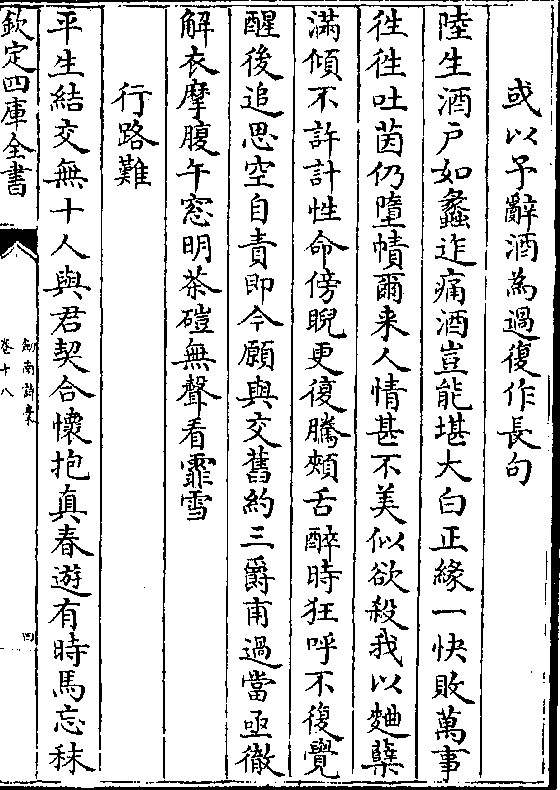 或以予辭酒為過復作長句
陸生酒戶如蠡迮痛酒豈能堪大白正緣一快敗萬事
徃徃吐茵仍墮幘爾来人情甚不美似欲殺我以麯糱
滿傾不許計性命傍睨更復騰頰舌醉時狂呼不復覺
醒後追思空自責即今願與交舊約三爵甫過當亟徹
解衣摩腹午窓明茶磑無聲看霏雪
行路難
平生結交無十人與君契合懷抱真春遊有時馬忘秣
欽定四庫全書
劍南詩稾
卷十八
四